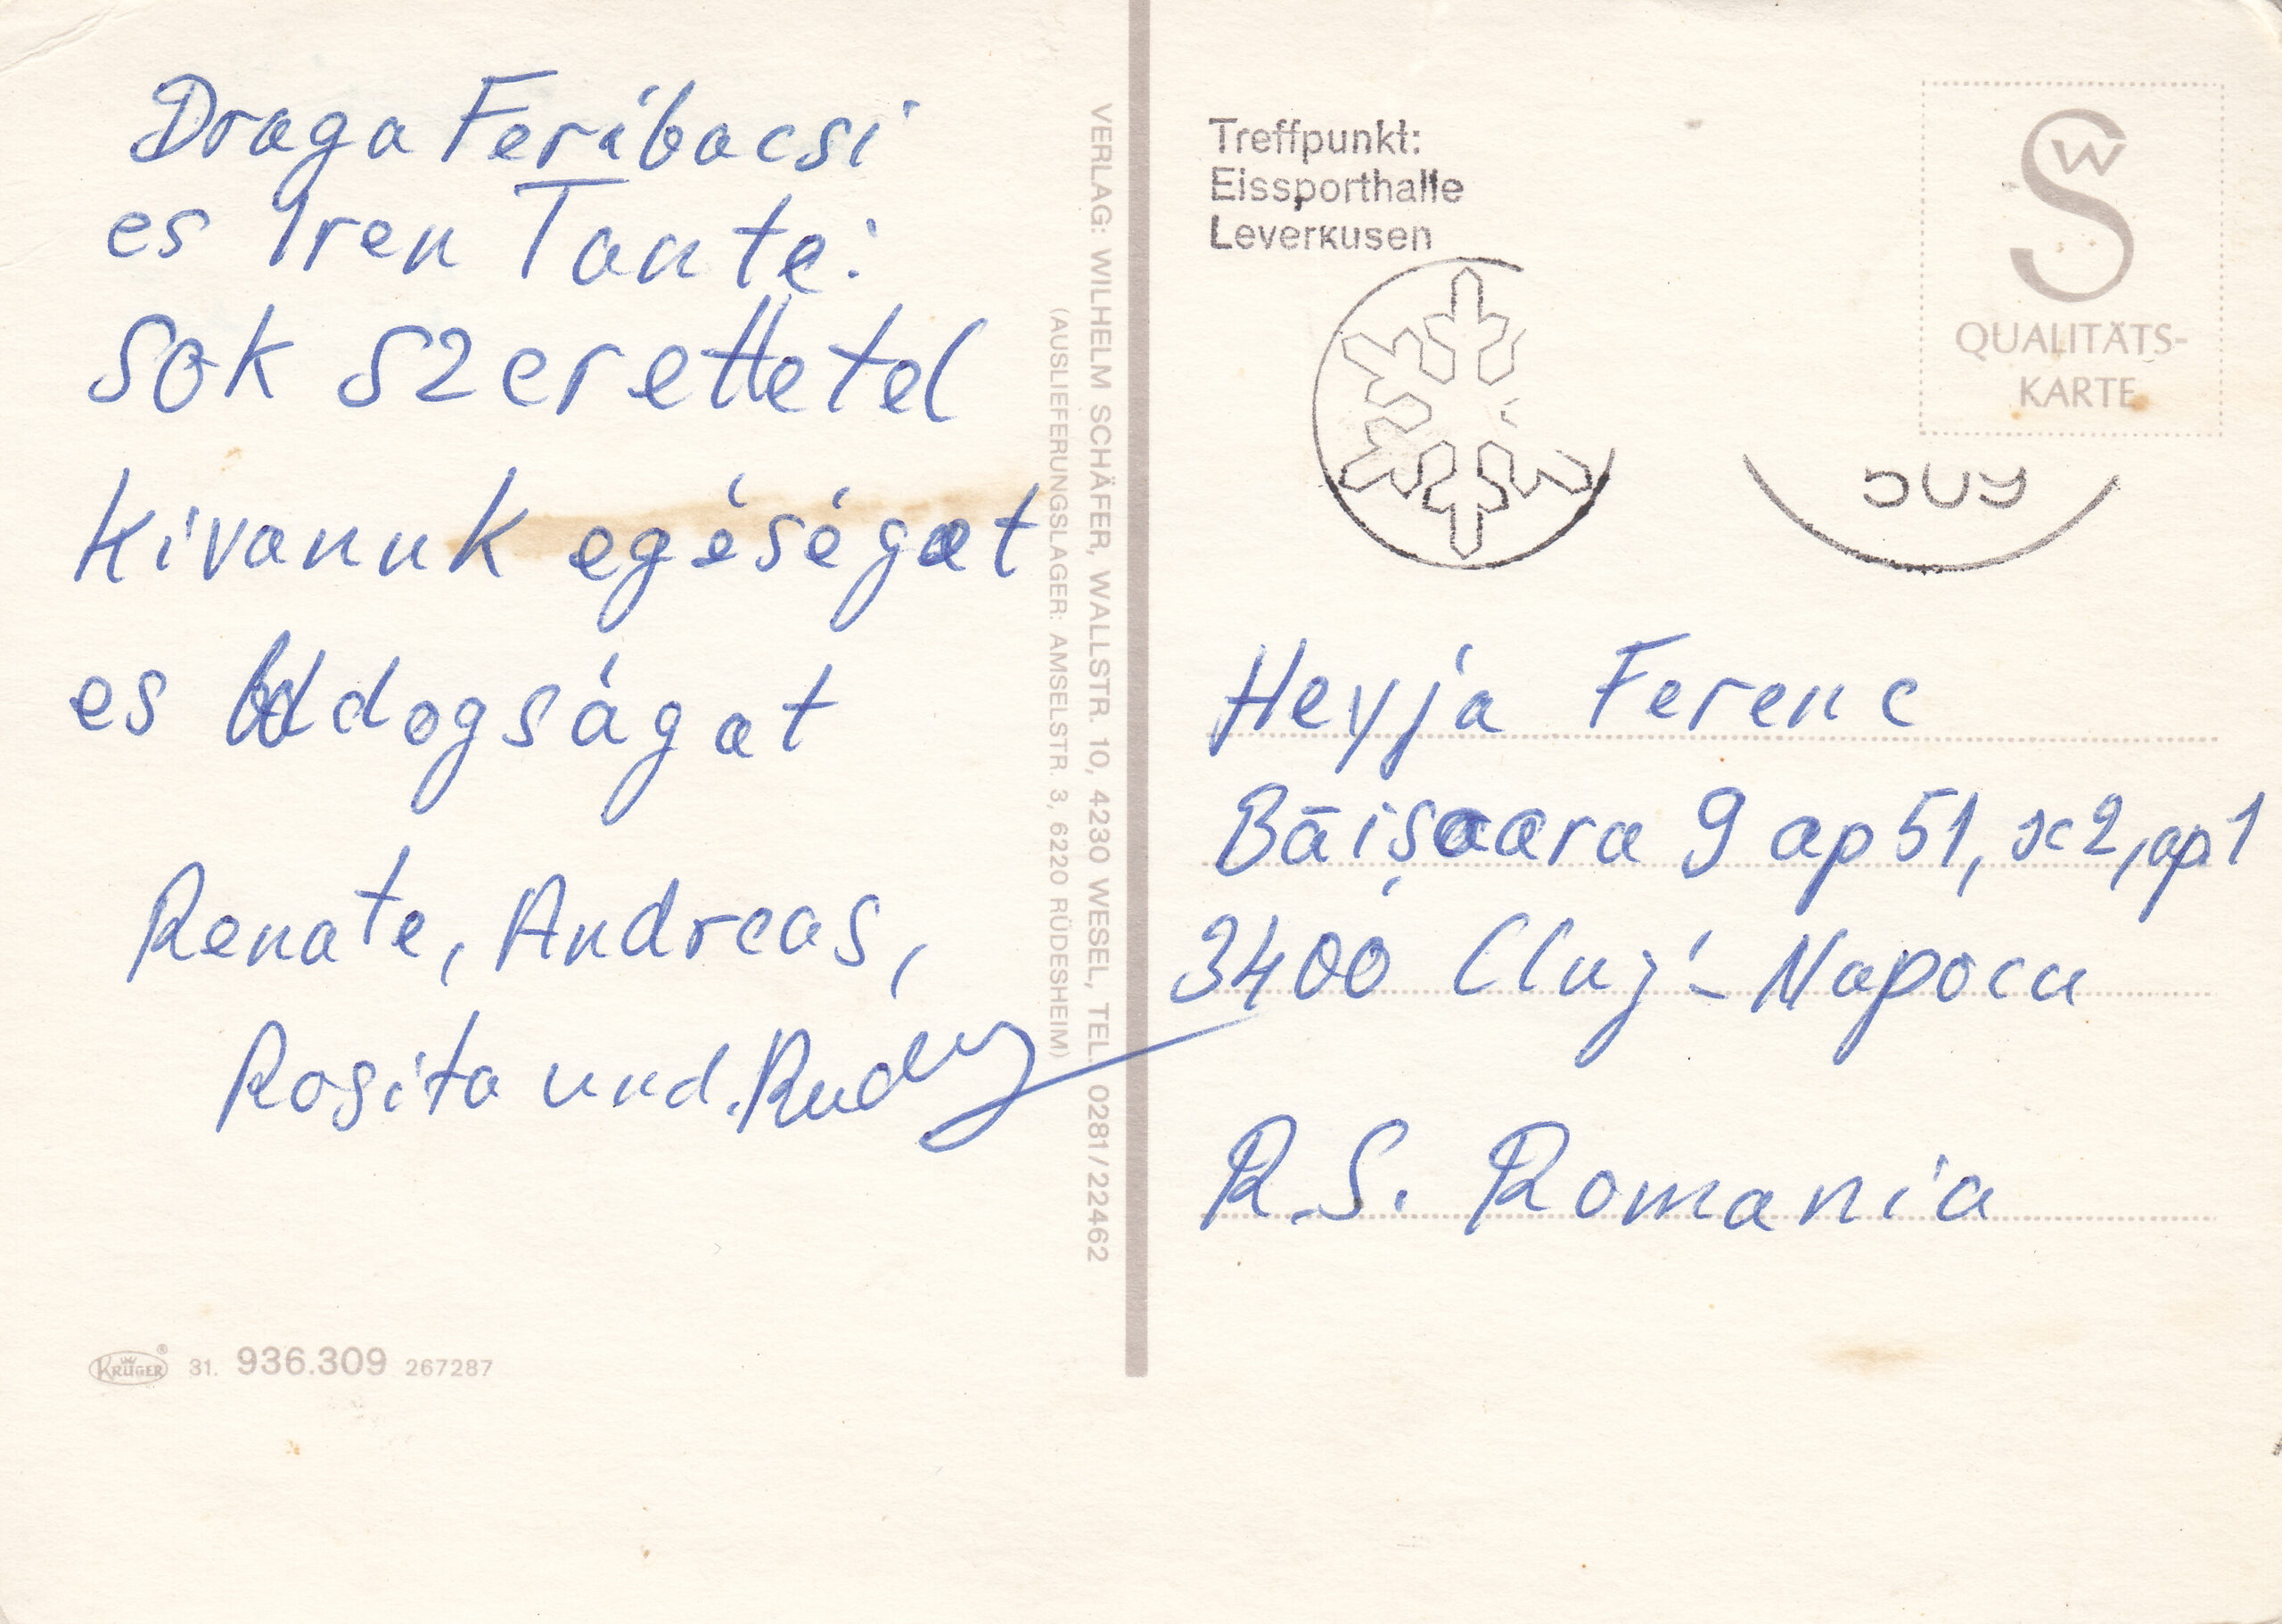 Draga Feribacsi
es Iren Tante:
Sok szerettetel
kivanuk egéségat
es boldogságat
Renate, Andreas,
Rosita und Rudy
VERLAG: WILHELM SCHÄFER, WALLSTR. 10, 4230 WESEL, TEL. 0281/22462
(AUSLIEFERUNGSLAGER: AMSELSTR. 3, 6220 RÜDESHEIM)
KRÜGER ® 31. 936.309 267287
Treffpunkt:
Eissporthalle
Leverkusen
SW
QUALITÄTS-
KARTE
Heyja Ferenc
9 ap 51, sc 2, ap 1
3400 Cluj-Napoca
R.S. Romania